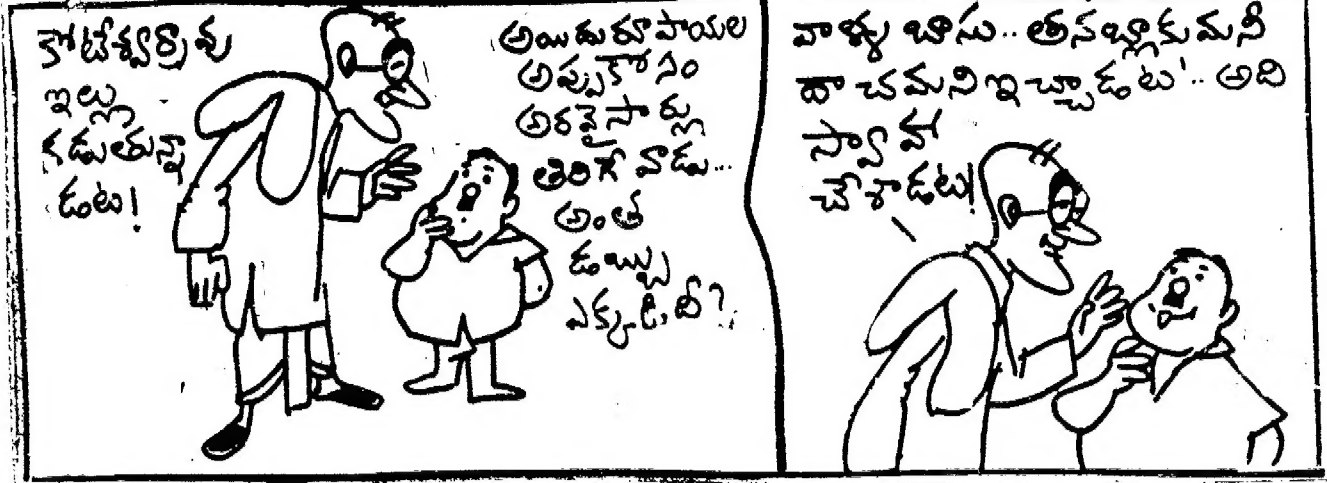 కోటేశ్వర్రావు
ఇల్లు
కడుతున్నా
డటు!
అయిదురూపాయల
అప్పుకోసం
అరవైసార్లు
తిరిగే వాడు...
అంత
డబ్బు
ఎక్కడిదీ?
వాళ్ళ బాసు.. తనబ్లాకుమనీ
దాచమని ఇచ్చాడటు!.. అది
స్వాహా
చేశాడటు!